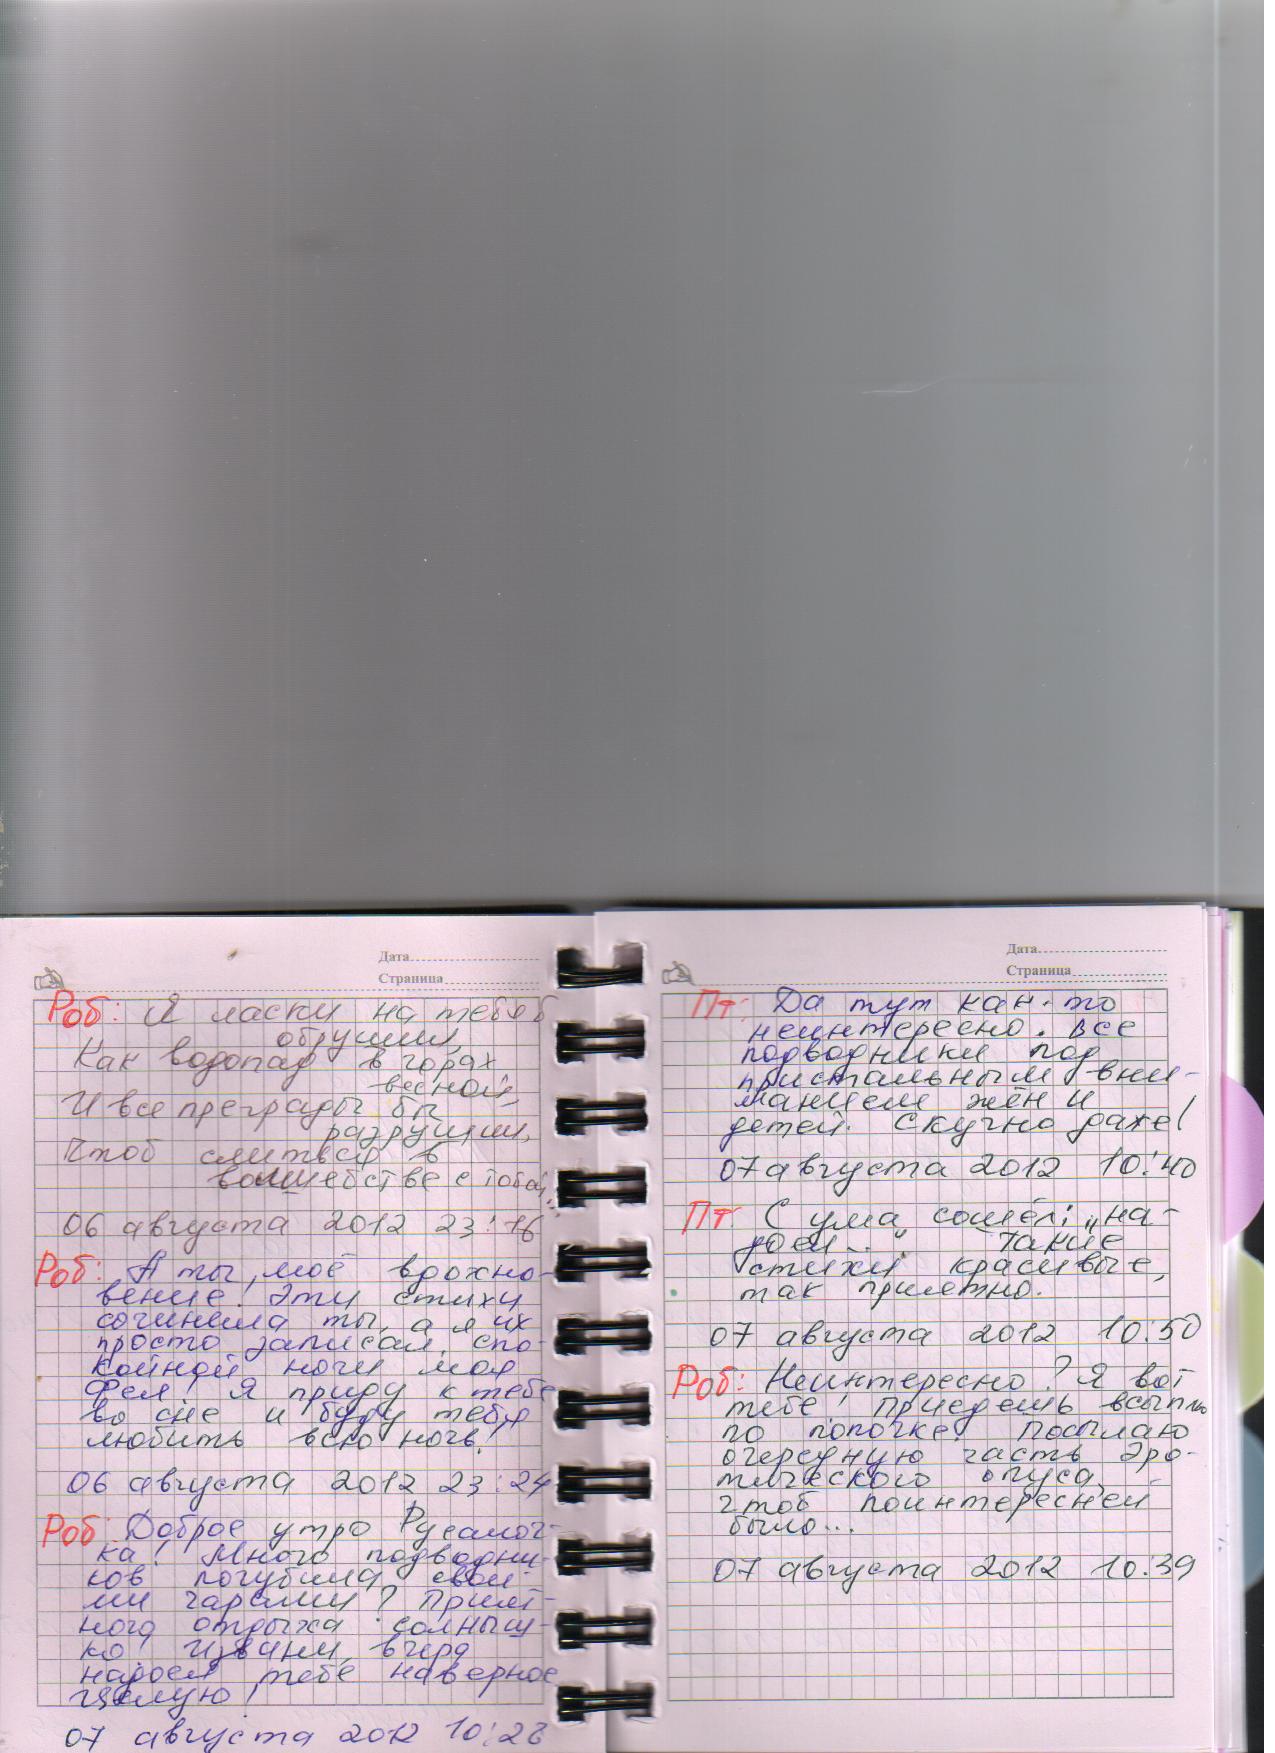 Дата
Страница
Роб: Я ласки на тебя б
обрушил,
Как водопад в горах
весной,
И все преграды бы
разрушил,
Чтоб слиться в
волшебстве с тобой...
06 августа 2012 23:16
Роб: А ты, моё вдохно-
вение! Эти стихи
сочинила ты, а я их
просто записал, спо-
койной ночи моя
Фея! Я приду к тебе
во сне и буду тебя
любить всю ночь!
06 августа 2012 23:24
Роб: Доброе утро Русалоч-
ка! Много подводни-
ков погубила свои-
ми чарами? Прият-
ного отдыха солныш-
ко! Извини, вчера
надоел тебе наверное
Целую!
07 августа 2012 10:28
Дата
Страница
Пт: Да тут как-то
неинтересно. Все
подводники под
пристальным вни-
манием жён и
детей. Скучно даже!
07 августа 2012 10:40
Пт: С ума сошёл: „на-
доел..." Такие
стихи красивые,
так приятно.
07 августа 2012 10:50
Роб: Неинтересно? Я вот
тебе! Приедешь всыплю
по попочке! Посылаю
очередную часть эро-
тического опуса,
чтоб поинтересней
было...
07 августа 2012 10:39